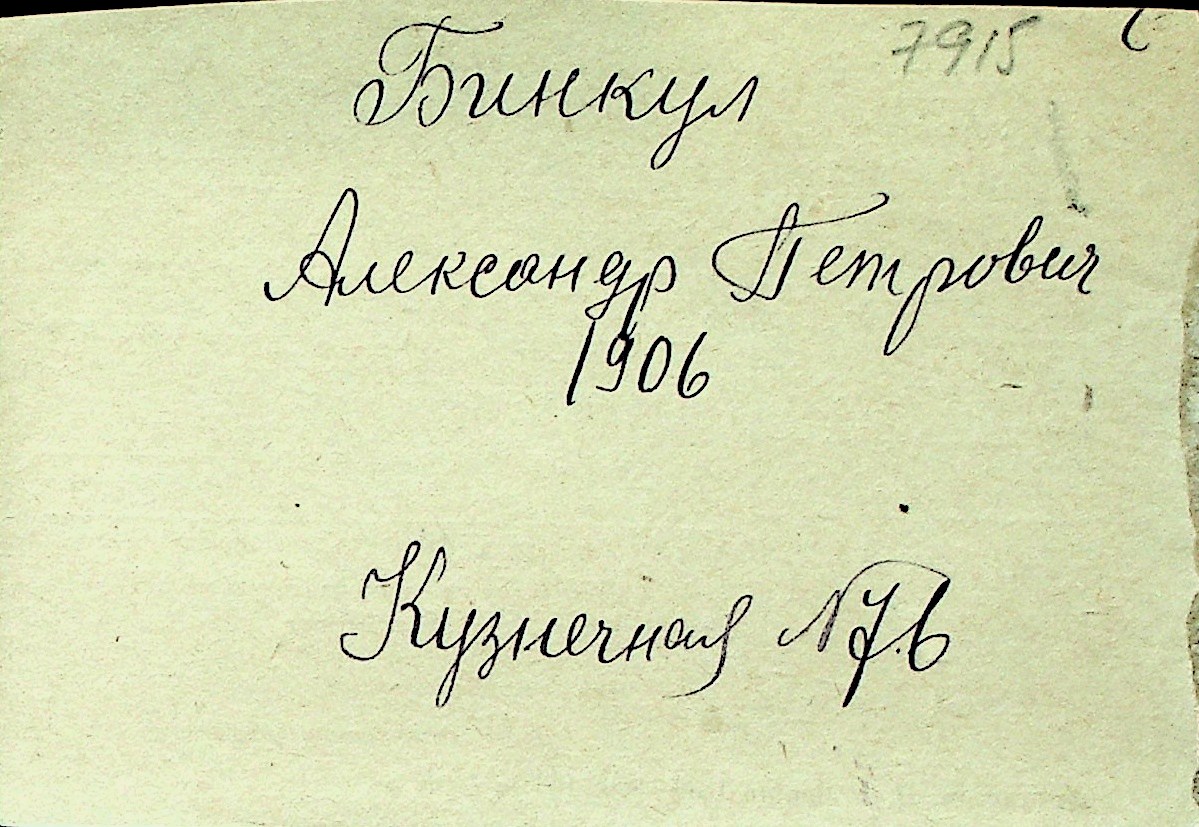 7915
Бинкул
Александр Петрович
1906
Кузнечная №76